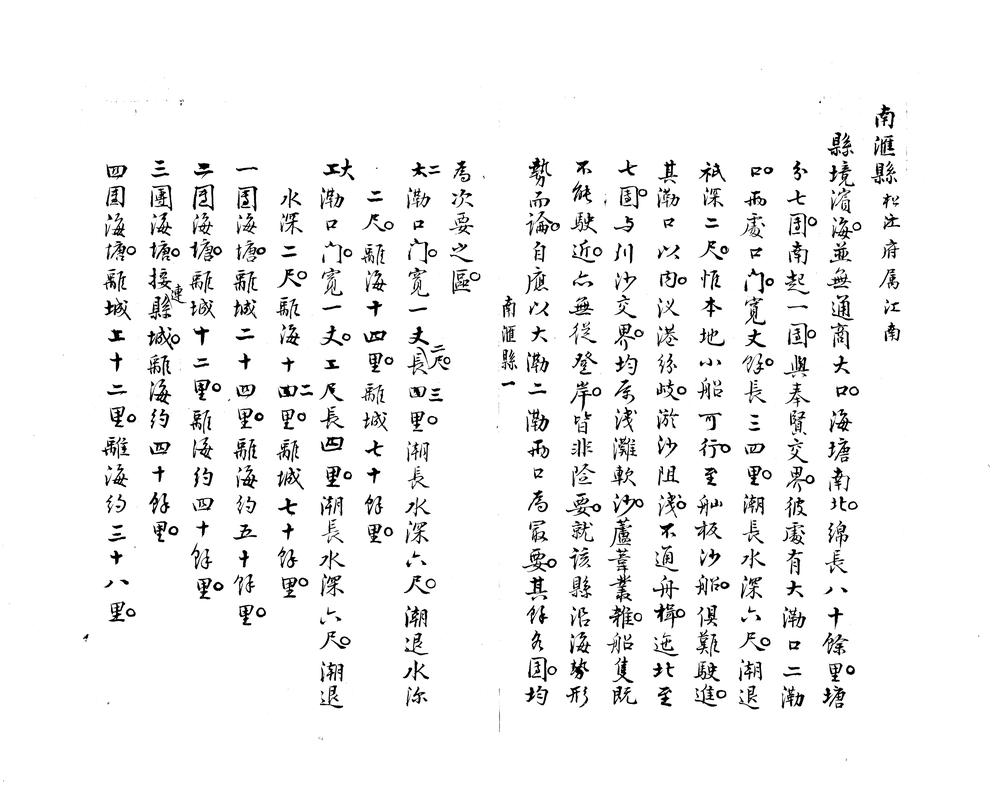 南滙縣 松江府属江南
縣境濱海。並無通商大口。海塘南北。綿長八十餘里。塘
分七囯。南起一囯。與奉賢交界。彼處有大泐口二泐
口。兩處口门。寬丈餘。長三四里。潮長水深六尺。潮退
祇深二尺。惟本地小船可行。至舢板沙船。俱難駛進。
其泐口以内。汊港紛歧。淤沙阻淺。不通舟楫。迤北至
七囯。与川沙交界。均屬浅灘軟沙。蘆葦叢雜。船隻既
不能駛近。亦無從登岸。皆非险要。就該縣沿海势形
勢而論。自應以大泐二泐兩口爲最要。其餘各囯。均
南滙縣 一
爲次要之區。
二泐口门。寬一丈二尺。長三里。潮長水深六尺。潮退水深
二尺。離海十四里。離城七十餘里。
大泐口门。寬一丈。工尺長四里。潮長水深六尺。潮退
水深二尺。離海十二里。離城七十餘里。
一囯海塘。離城二十四里。離海約五十餘里。
二囯海塘。離城十二里。離海約四十餘里。
三團海塘。接連縣城。離海約四十餘里。
四囯海塘。離城工十二里。離海約三十八里。